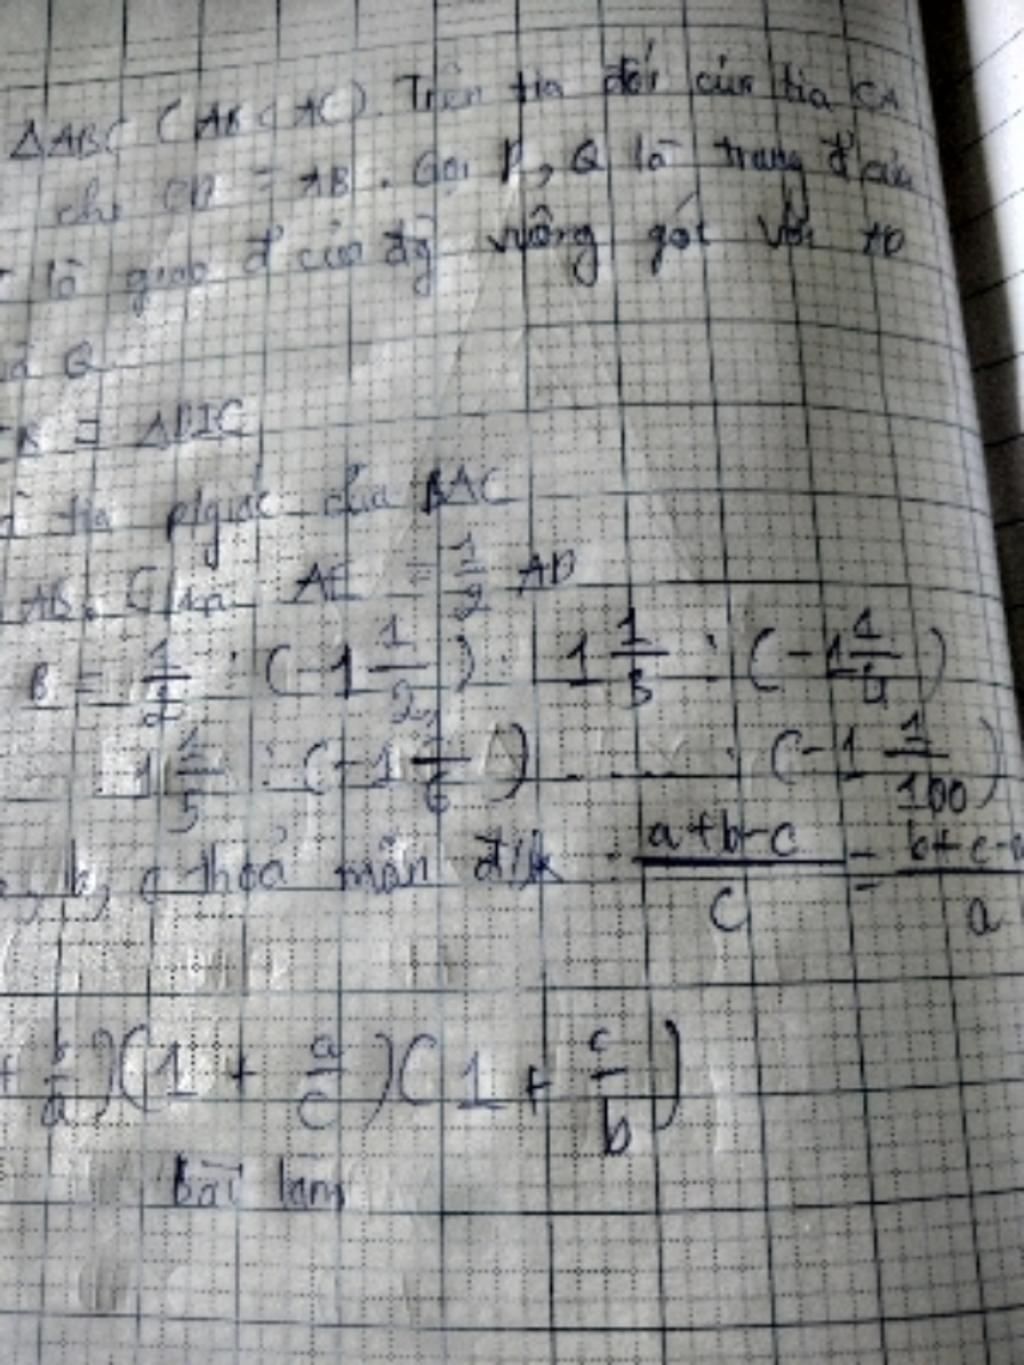 ΔABC (AB < AC). Trên tia đối của tia CA
cho CD = AB. Gọi P, Q là trung đ của
là giao đ của đg vuông góc với AD
Q
= ΔDIC
tia p/giác của BAC
AE = 1/2 AD
B = 1/2 : (-1 1/2) . 1 1/3 : (-1 1/4)
1 1/5 : (-1 1/6) . . . . . : (-1 1/100)
b, c thoả mãn đ/k : (a+b-c)/c = (b+c-a)/a
+ b/a)(1 + a/c)(1 + c/b)
bài làm